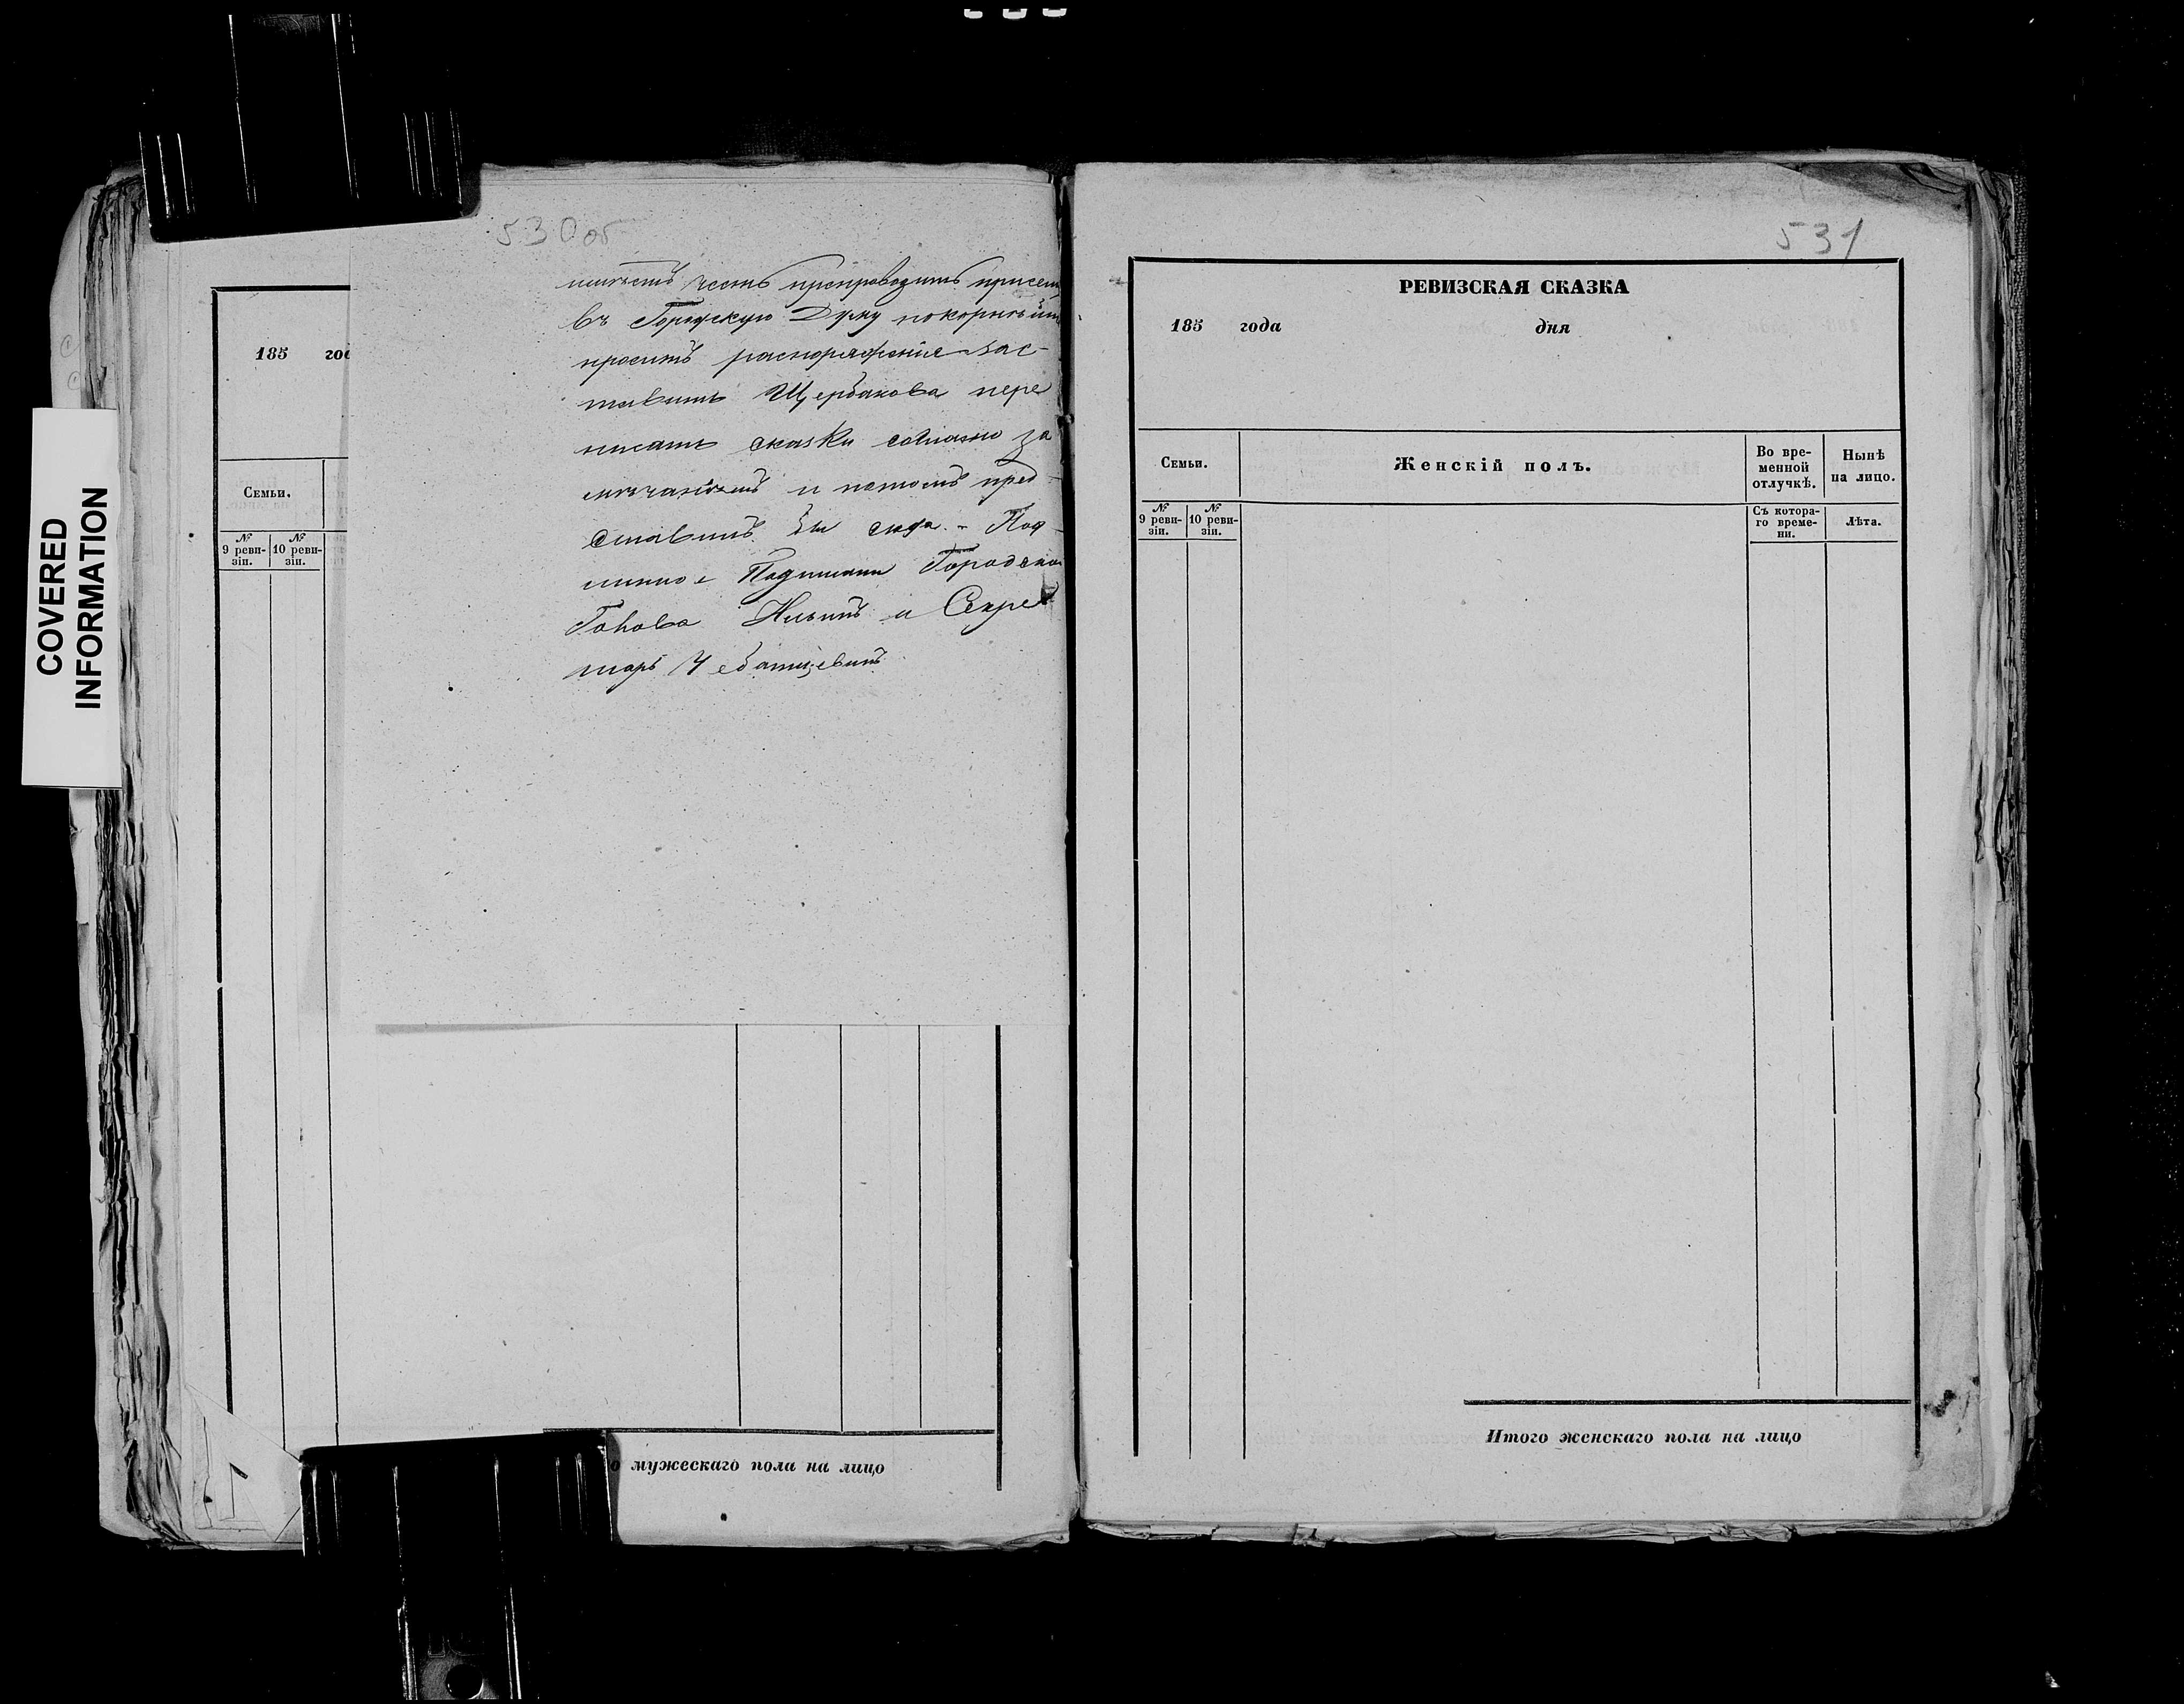 COVERED
INFORMATION
530об
185 год
Семьи.
№
9 реви-
зіи.
№
10 реви-
зіи.
имѣетъ честь препроводить при сем
въ Городскую Думу покорнѣйш
проситъ распоряженіе зас-
тавить Щербакова пере
писать сказки согласно за
мѣчаніямъ и потомъ пред-
ставить бы сюда. - Под-
линное Подписали Городской
Голова Ильинъ и Секре
тарь
о мужескаго пола на лицо
531
РЕВИЗСКАЯ СКАЗКА
185 года дня
Семьи.
Женскій полъ.
Во вре-
менной
отлучкѣ.
Нынѣ
на лицо.
№
9 реви-
зіи.
№
10 реви-
зіи.
Съ котора-
го време-
ни.
Лѣта.
Итого женскаго пола на лицо